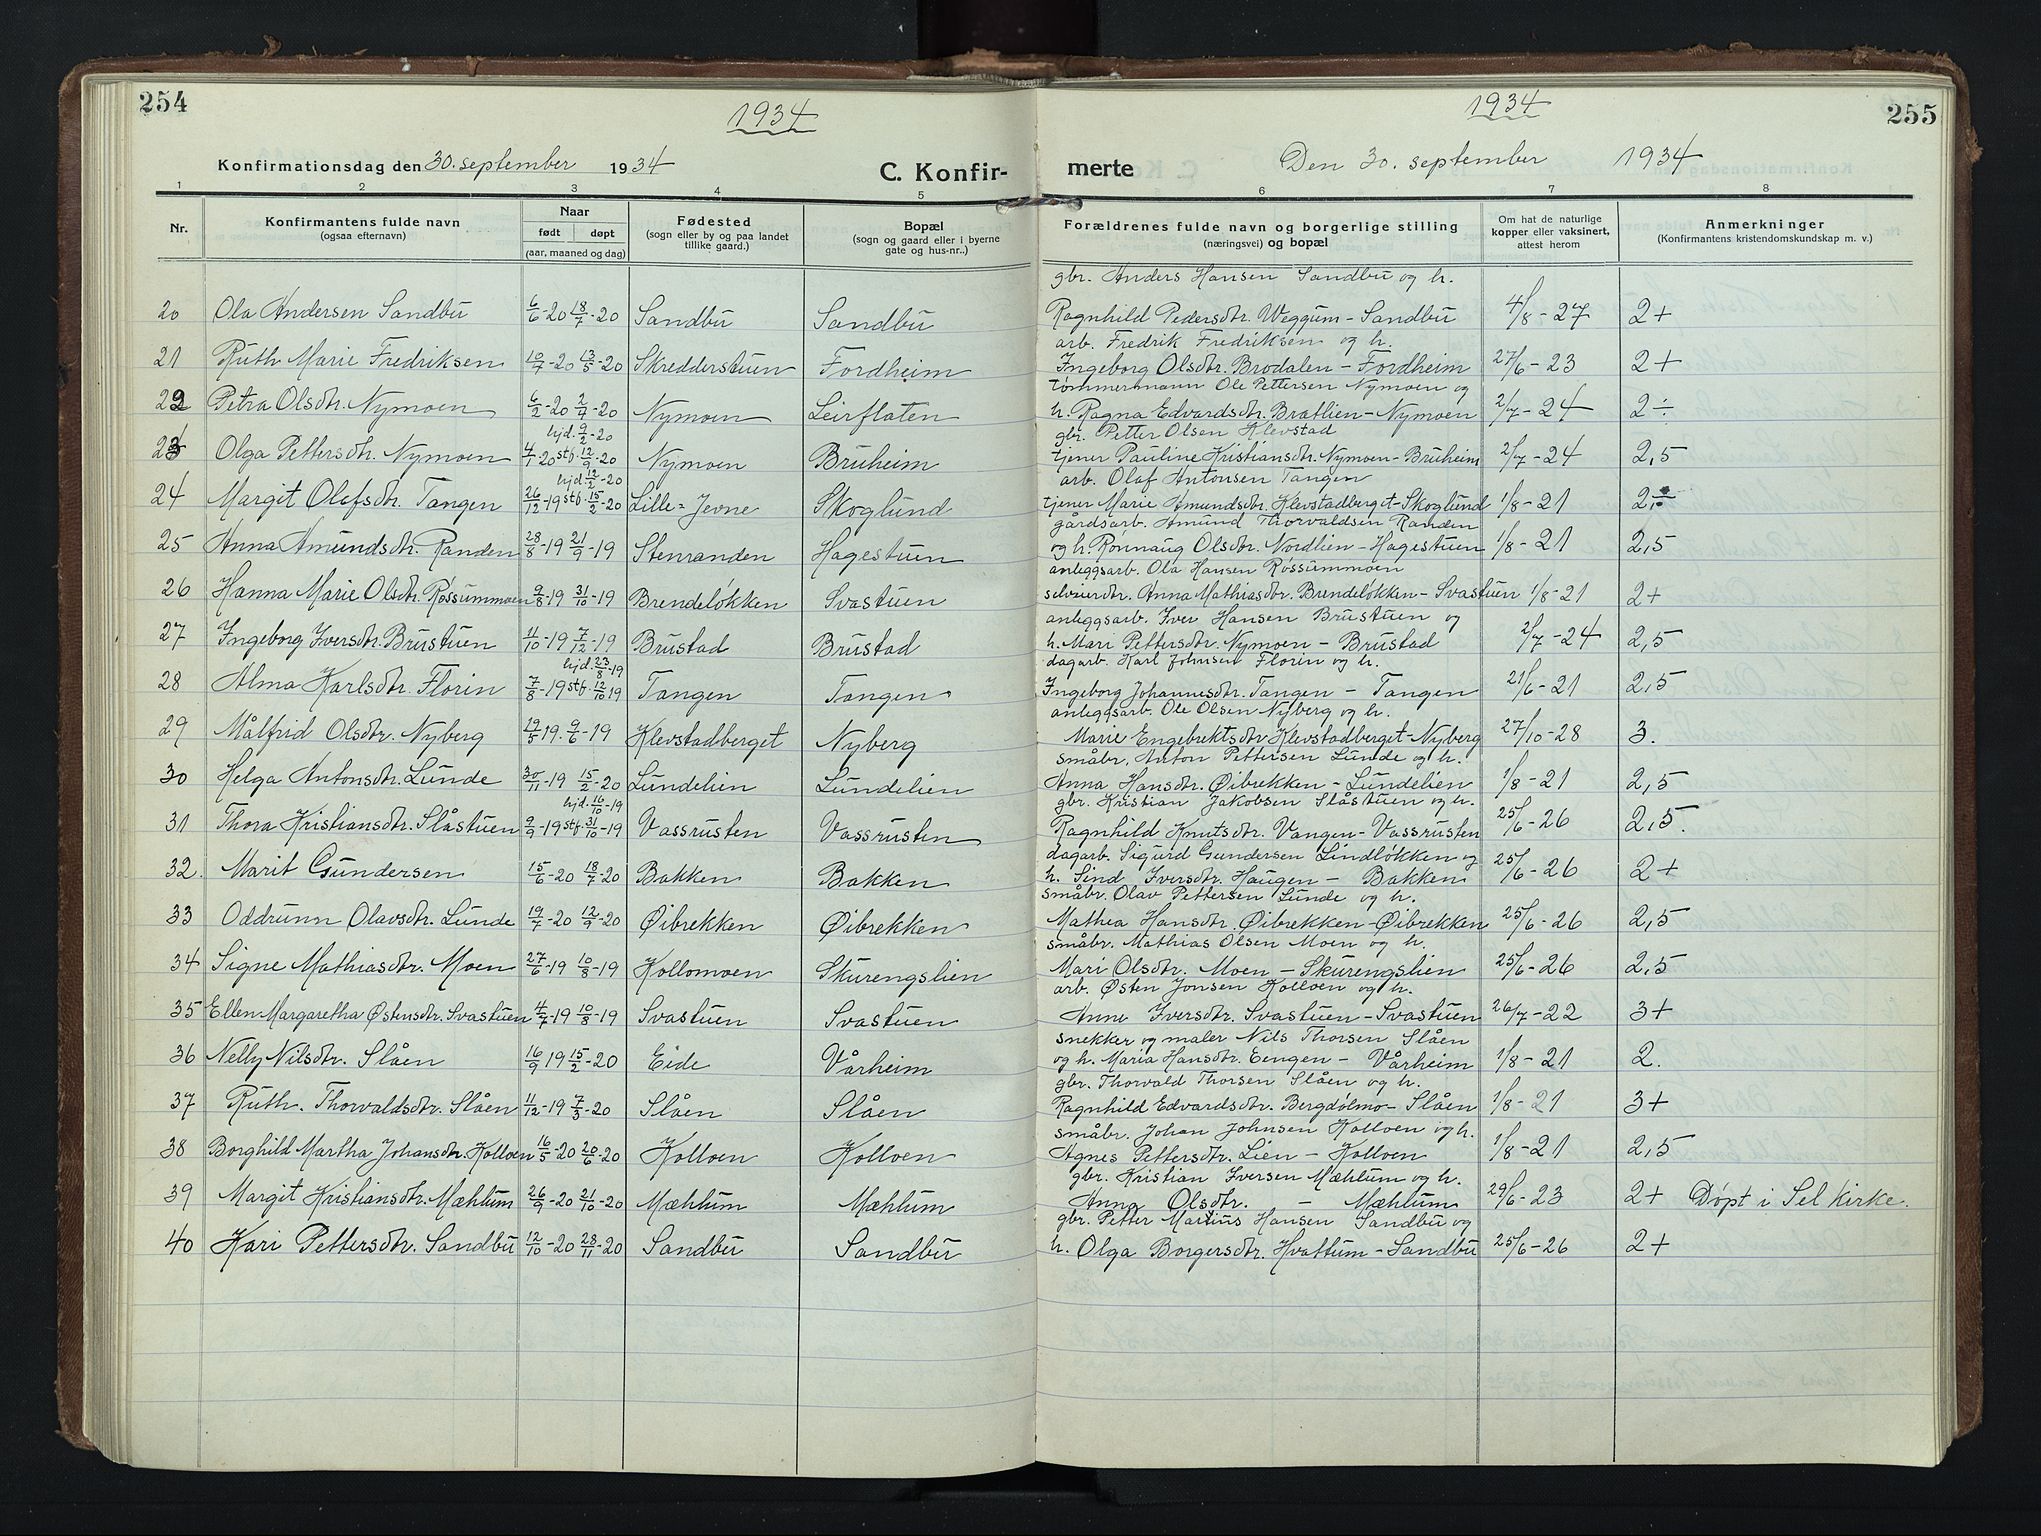 254
1934
Konfirmationsdag den 30. september 1934
C. Konfir-
1 2 3 4 5
Nr.
Konfirmantens fulde navn
(ogsaa efternavn)
Naar
født døpt
(aar, maaned og dag)
Fødested
(sogn eller by og paa landet
tillike gaard.)
Bopæl
(sogn og gaard eller i byerne
gate og hus-nr..)
20 Ola Andersen Sandbu 6/6-20 18/7-20 Sandbu Sandbu
21 Ruth Marie Fredriksen 10/7-20 13/5-20 Skredderstuen Fordheim
22 Petra Olsdtr. Nymoen 6/2-20 2/4-20 Nymoen Leirflaten
hjd. 9/2-20
23 Olga Pettersdtr. Nymoen 4/1-20 stf. 12/9-20 Nymoen Bruheim
hjd. 12/2-20
24 Margit Olafsdtr. Tangen 26/12-19 stf. 15/2-20 Lille-Jevne Skoglund
25 Anna Amundsdtr. Randen 28/8-19 21/9-19 Stenranden Hagestuen
26 Hanna Marie Olsdtr. Røssummoen 9/8-19 31/10-19 Brendeløkken Svastuen
27 Ingeborg Iversdtr. Brustuen 11/10-19 7/12-19 Brustad Brustad
hjd. 23/8-19
28 Alma Karlsdtr. Florin 7/8-19 stf. 12/10 19 Tangen Tangen
29 Målfrid Olsdtr. Nyberg 19/5 19. 9/6-19 Klevstadberget Nyberg
30 Helga Antonsdtr. Lunde 30/11-19 15/2-20 Lundelien Lundelien
hjd. 16/10-19
31 Thora Kristiansdtr. Slåstuen 9/9-19 stf. 31/10-19 Vassrusten Vassrusten
32. Marit Gundersen 15/6-20 18/7-20 Bakken Bakken
33 Oddrunn Olavsdtr. Lunde 19/7-20 12/9-20 Øibrekken Øibrekken
34 Signe Mathiasdtr. Moen 27/6-19 10/8-19 Kollomoen Skurengslien
35 Ellen Margaretha Østensdtr. Svastuen 4/7-19 10/8-19 Svastuen Svastuen
36 Nelly Nilsdtr. Slåen 16/9 19 15/2-20 Eide Vårheim
37 Ruth. Thorvaldsdtr. Slåen 11/12-19 7/3-20 Slåen Slåen
38 Borghild Martha Johansdtr. Kolloen 16/5-20 20/6-20 Kolloen Kolloen
39 Margit Kristiansdtr. Mæhlum 26/9-20 21/10-20 Mæhlum Mæhlum
40 Kari Pettersdtr. Sandbu 12/10-20 28/11-20 Sandbu Sandbu
1934
255
merte
Den 30. september 1934
6 7 8
Forældrenes fulde navn og borgerlige stilling
(næringsvei) og bopæl
Om hat de naturlige
kopper eller vaksinert,
attest herom
Anmerkninger
(Konfirmantens kristendomskundskap m. v.)
gbr. Anders Hansen Sandbu og h.
Ragnhild Pedersdtr. Weggum - Sandbu 4/8-27 2+
arb. Fredrik Fredriksen og h.
Ingeborg Olsdtr. Brodalen - Fordheim 27/6-23 2+
tømmermann Ole Pettersen Nymoen og
h. Ragna Edvardsdtr. Brætlien - Nymoen 2/7-24 2÷
gbr. Petter Olsen Klevstad
tjener Pauline Kristiansdtr. Nymoen - Bruheim 2/7-24 2,5
arb. Olaf Antonsen Tangen
tjener Marie Amundsdtr. Klevstadberget - Skoglund 1/8-21 2÷
gårdsarb. Amund Thorvaldsen Randen
og h. Rønnaug Olsdtr. Nordlien - Hagestuen 1/8-21 2,5
anleggsarb. Ola Hansen Røssummoen
selveierdtr. Anna Mathiasdtr. Brendeløkken - Svastuen 1/8-21 2+
anleggsarb. Iver Hansen Brustuen og
h. Mari Pettersdtr. Nymoen - Brustad 2/7-24 2,5
dagarb. Karl Johnsen Florin og h.
Ingeborg Johannesdtr. Tangen - Tangen 21/6-21 2,5
anleggsarb. Ole Olsen Nyberg og h.
Marie Engebrektsdtr. Klevstadberget - Nyberg 27/10-28 3.
småbr. Anton Pettersen Lunde og h.
Anna Hansdtr. Øibrekken - Lundelien 1/8-21 2,5
gbr. Kristian Jakobsen Slåstuen og h.
Ragnhild Knutsdtr. Vangen - Vassrusten 25/6-26 2,5.
dagarb. Sigurd Gundersen Lindløkken og
h. Sind Iversdtr. Haugen - Bakken 25/6-26 2+
småbr. Olav Pettersen Lunde og h.
Mathea Hansdtr. Øibrekken - Øibrekken 25/6-26 2,5
småbr. Mathias Olsen Moen og h.
Mari Olsdtr. Moen - Skurengslien 25/6-26 2,5
arb. Østen Jonsen Kolloen og h.
Anne Iversdtr. Svastuen - Svastuen 26/7-22 3+
snekker og maler Nils Thorsen Slåen
og h. Maria Hansdtr. Eengen - Vårheim 1/8-21 2.
gbr. Thorvald Thorsen Slåen og h.
Ragnhild Edvardsdtr. Bergdølmo - Slåen 1/8-21 3+
småbr. Johan Johnsen Kolloen og h.
Agnes Pettersdtr. Lien - Kolloen 1/8-21 2,5
gbr. Kristian Iversen Mæhlum og h.
Anna Olsdtr. - Mæhlum 29/6-23 2+ Døpt i Sel kirke.
gbr. Petter Martius Hansen Sandbu og
h. Olga Borgersdtr. Hvattum - Sandbu 25/6-26 2+